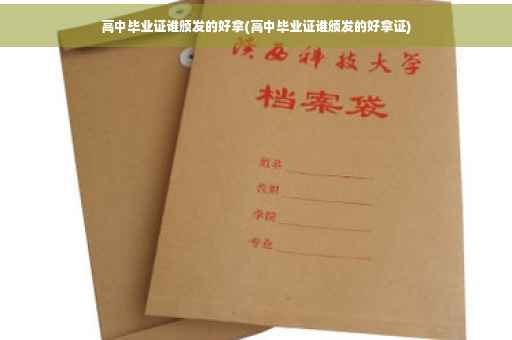 高中毕业证谁颁发的好拿(高中毕业证谁颁发的好拿证)
陕西科技大学
档案袋
姓名
学院
专业